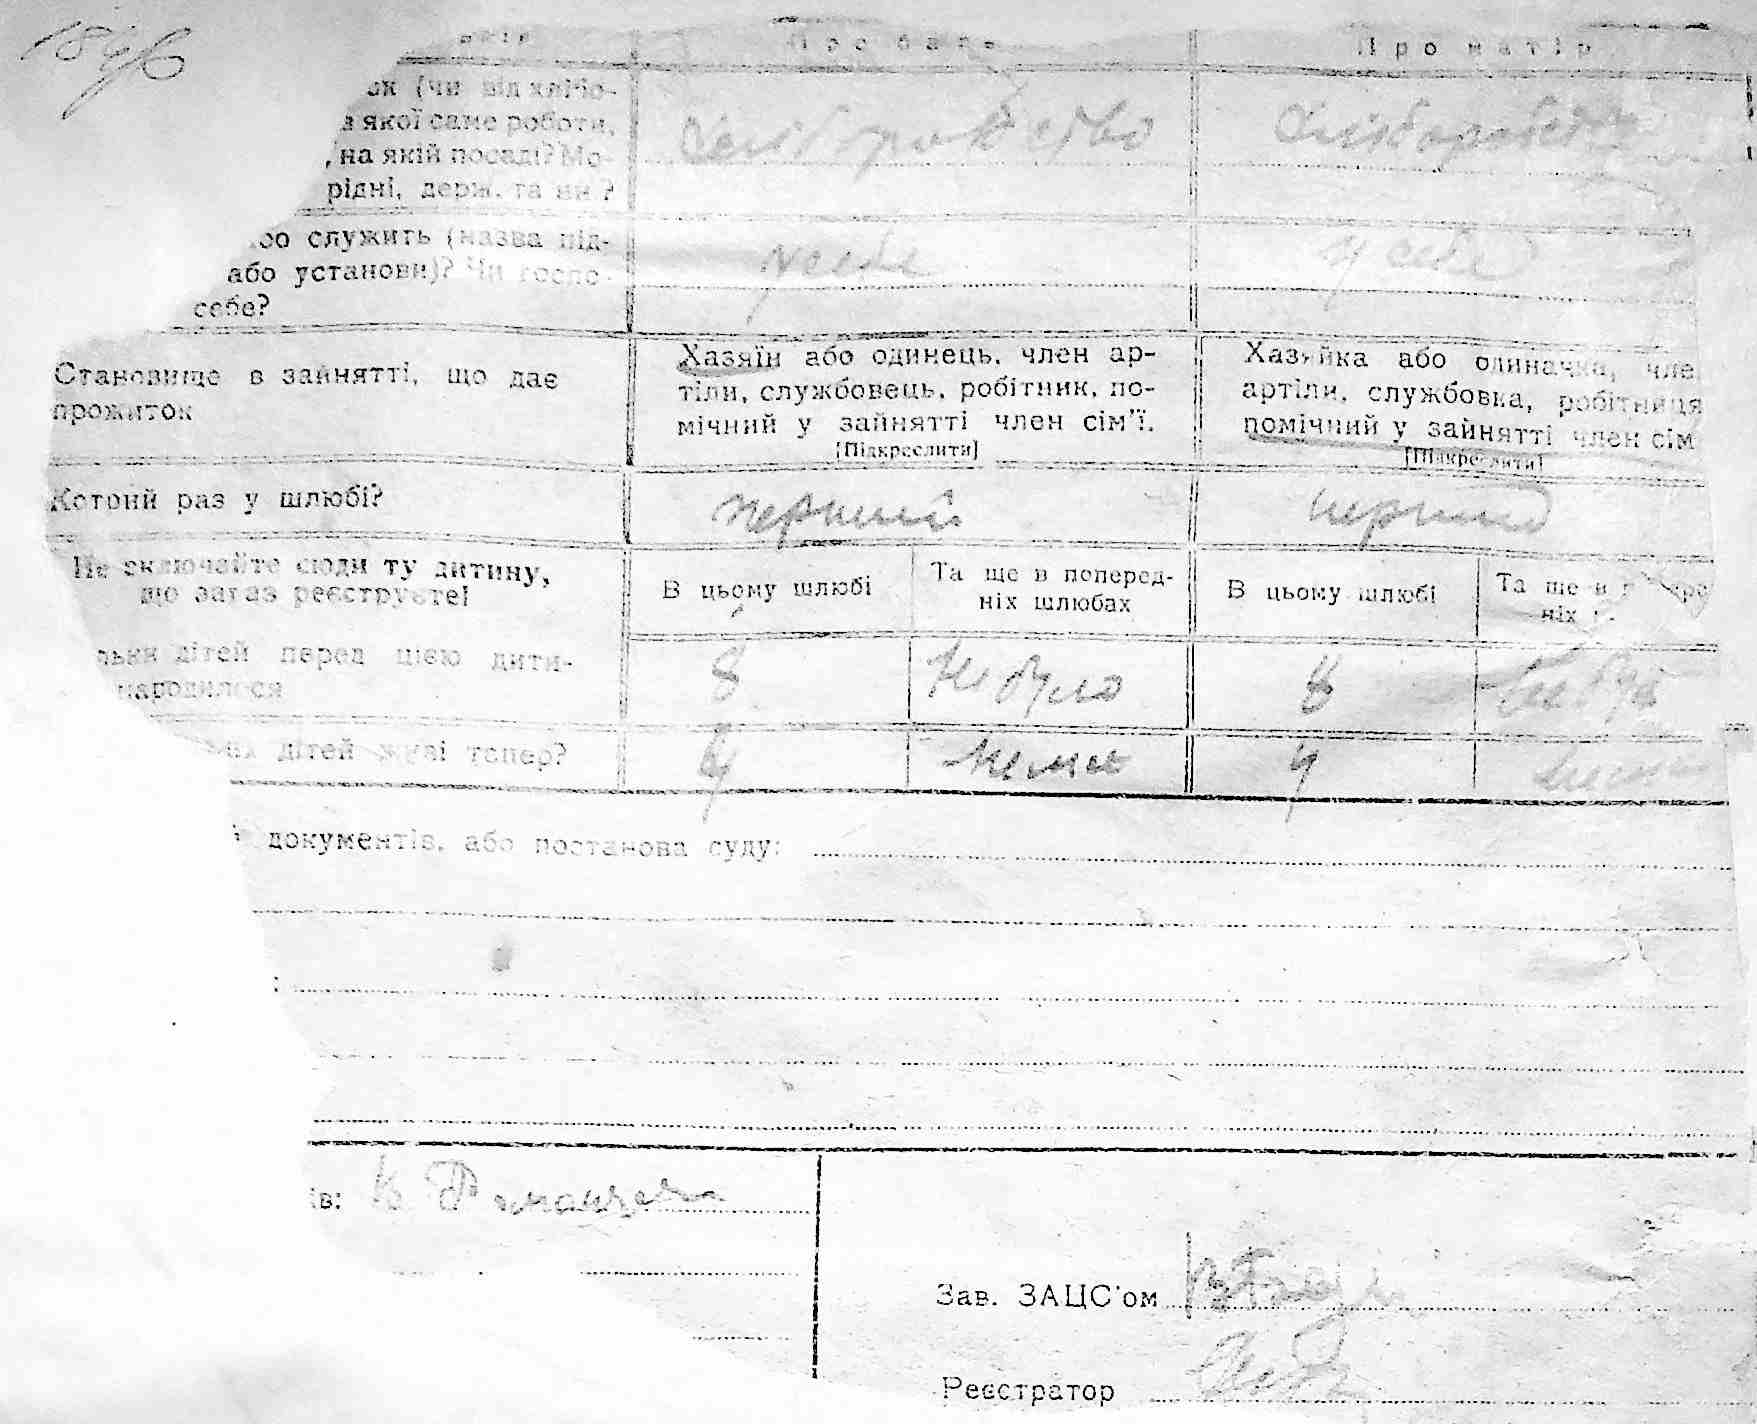 Про батька
Про матір
ок (чи від хлібо-
з якої саме роботи,
на якій посаді? Мо-
рідні, держ. та ин?
Сільгоробство
служить (назва під-
або установи)? Чи госпо-
себе?
у себе
у себе
Становище в зайнятті, що дає
прожиток
Хазяїн або одинець, член ар-
тіли, службовець, робітник, по-
мічний у зайнятті член сім'ї.
[Підкреслити]
Хазяйка або одиначка, чле
артіли, службовка, робітниця
помічний у зайнятті член сім
[Підкреслити]
Котрий раз у шлюбі?
перший
перший
Не включайте сюди ту дитину,
що зараз реєструєте!
В цьому шлюбі
Та ще в поперед-
ніх шлюбах
В цьому шлюбі
Та ще в
ніх
дітей перед цією дити-
народилося
8
Не було
8
Не було
дітей живі тепер?
4
немає
4
документів, або постанова суду:
ів:
Зав. ЗАЦС'ом
Реєстратор